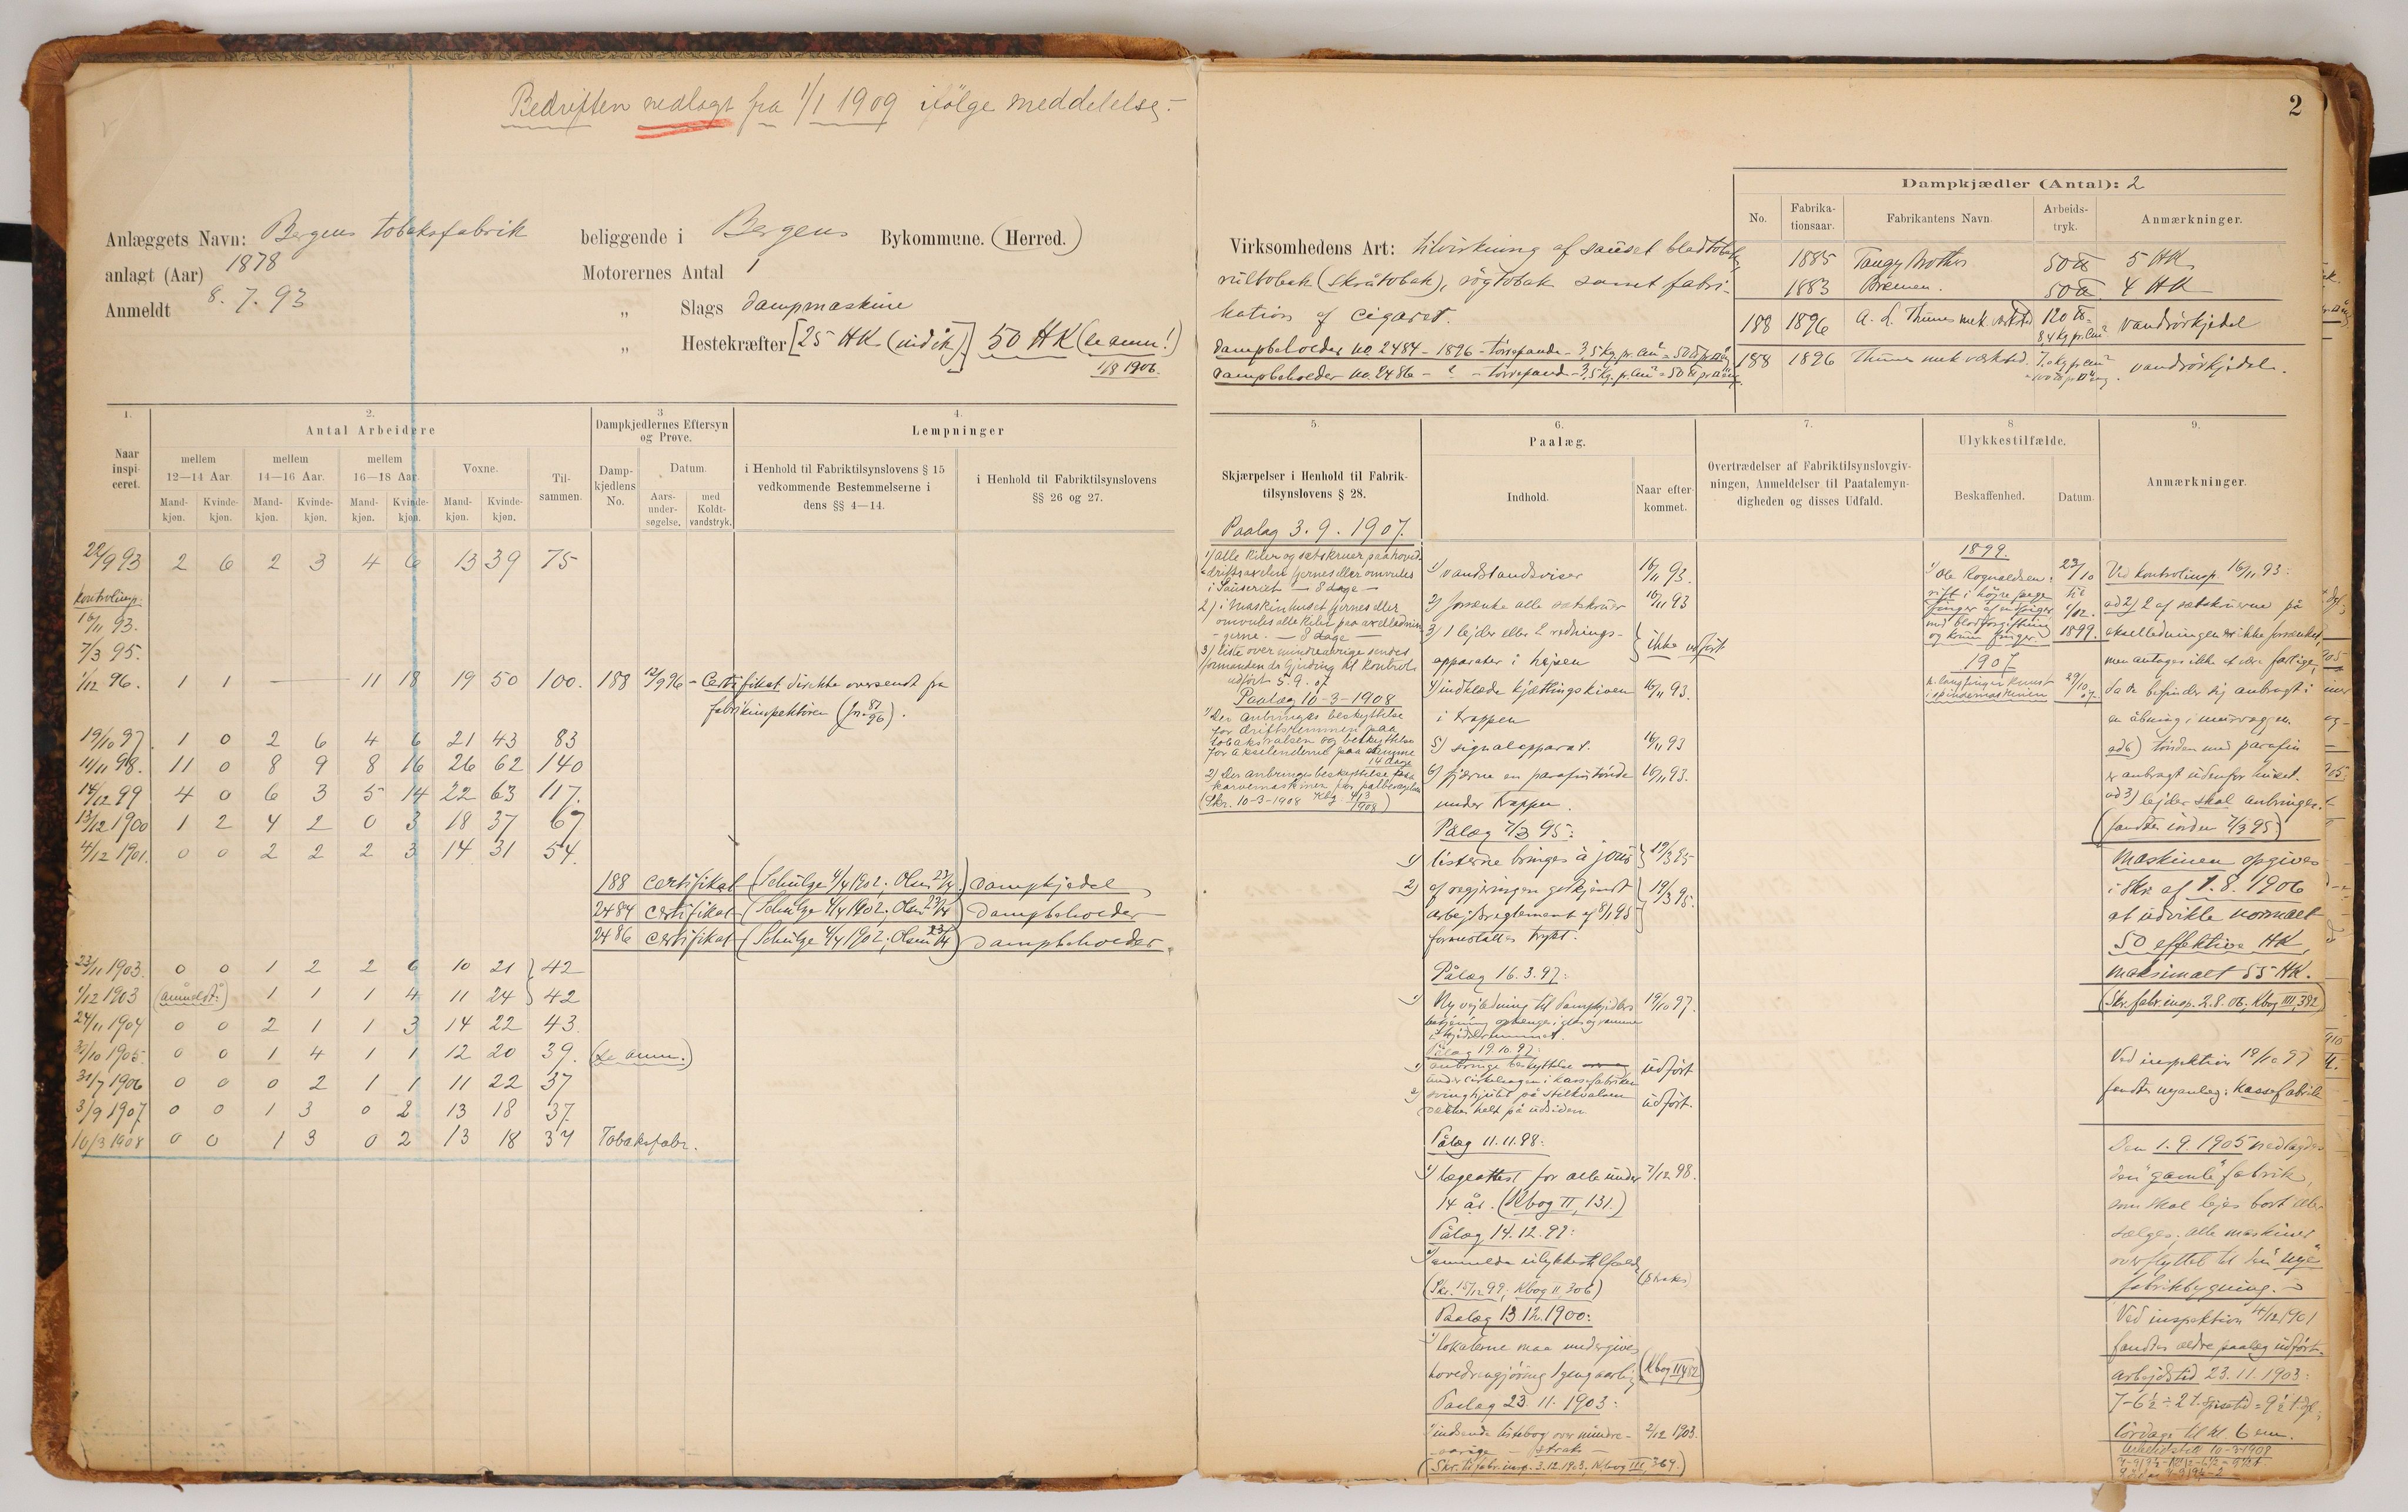 Bedriften nedlagt fra 1/1 1909 ifölge meddelelse.
Anlæggets Navn: Bergens tobaksfabrik
beliggende i Bergens Bykommune. (Herred.)
anlagt (Aar) 1878
Motorernes Antal 1
Anmeldt 8. 7. 93
„ Slags dampmaskine
„ Hestekræfter [25 HK (indik)] 50 HK (se anm!)
1/8 1906.
1.
2.
3
4.
Naar inspiceret.
Antal Arbeidere
Dampkjedlernes Eftersyn og Prøve.
Lempninger
mellem 12—14 Aar.
mellem 14—16 Aar.
mellem 16—18 Aar.
Voxne.
Tilsammen.
Dampkjedlens No.
Datum.
i Henhold til Fabriktilsynslovens § 15 vedkommende Bestemmelserne i dens §§ 4—14.
i Henhold til Fabriktilsynslovens §§ 26 og 27.
Mandkjøn. Kvindekjøn. Mandkjøn. Kvindekjøn. Mandkjøn. Kvindekjøn. Mandkjøn. Kvindekjøn.
Aarsundersøgelse.
med Koldtvandstryk.
22/9 93 2 6 2 3 4 6 13 39 75
Kontrolinsp.
16/11 93.
7/3 95.
1/12 96. 1 1 — 11 18 19 50 100. 188 12/9 96 - Certifikat direkte oversendt fra
fabrikinspektören
19/10 97. 1 0 2 6 4 6 21 43 83
11/11 98. 11 0 8 9 8 16 26 62 140
14/12 99 4 0 6 3 5 14 22 63 117.
13/12 1900 1 2 4 2 0 3 18 37 67
4/12 1901. 0 0 2 2 2 3 14 31 54.
188 certifikat (Schulze 4/4 1902; Olsen 23/4) Dampkjedel
2484 certifikat (Schulze 4/4 1902; Olsen 23/4) Dampbeholder
2486 certifikat (Schulze 4/4 1902; Olsen 23/4) Dampbeholder.
23/11 1903. 0 0 1 2 2 6 10 21 42
1/12 1903 (anmeldt:) 1 1 1 4 11 24 42
24/11 1904 0 0 2 1 1 3 14 22 43.
30/10 1905. 0 0 1 4 1 1 12 20 39. (se anm.)
31/7 1906 0 0 0 2 1 1 11 22 37
3/9 1907 0 0 1 3 0 2 13 18 37.
10/3 1908 0 0 1 3 0 2 13 18 37 Tobaksfabr.
2
Virksomhedens Art: tilvirkning af sauset bladtobak
rultobak (skråtobak), rögtobak samt fabri-
kation af cigaret.
Dampbeholder No. 2484 - 1896 - törrepande - 3,5 kg. pr. cm²
Dampbeholder No. 2486 - ? - törrepande - 3,5 kg. pr. cm²
Dampkjædler (Antal): 2
No.
Fabrikationsaar.
Fabrikantens Navn.
Arbeidstryk.
Anmærkninger.
1885 Tangy Brothers 50 ℔ 5 HK
1883 Bremen. 50 ℔ 4 HK
188 1896 A. L. Thunes mek. værksted 120 ℔ = 8,4 kg pr. cm² vandrörkjedel
188 1896 Thunes mek værksted. 7,0 kg pr cm² vandrörkjedel.
5.
6.
7.
8
9.
Skjærpelser i Henhold til Fabriktilsynslovens § 28.
Paalæg.
Indhold.
Naar efterkommet.
Overtrædelser af Fabriktilsynslovgivningen, Anmeldelser til Paatalemyndigheden og disses Udfald.
Ulykkestilfælde.
Beskaffenhed.
Datum.
Anmærkninger.
Paalæg 3. 9. 1907.
1) alle kiler og sætskruer paa hoved-
driftsaxelen fjernes eller omvules
i Sauseriet — 8 dage —
2) i Maskinhuset fjernes eller
omvules alle kiler paa axelledningerne. — 8 dage —
3) liste over mindreaarige sendes
formanden
udfört 5. 9. 07
Paalæg 10-3-1908
1) Der anbringes beskyttelse
for driftsremmen paa
tobaksvalsen og beskyttelse
for akselenderne paa samme
14 dage
2) Der anbringes beskyttelse
karvemaskinen
(Skr. 10-3-1908 Kbg 4/3 1908)
1) vandstandsviser 16/11 93.
2) forsænke alle sætskruer 16/11 93
3) 1 lejder eller 2 rednings-
apparater i höjden ikke udfört
4) indklæde kjættingskiven 16/11 93.
i trappen
5) signalapparat. 16/11 93
6) fjærne en parafintönde 16/11 93.
under trappen.
Pålæg 7/3 95:
1) listerne bringes à jour 19/3 95
2) af regjeringen godkjendt 19/3 95.
arbejdsreglement af 8/1 95
forudsattes trykt.
Pålæg 16. 3. 97:
1) Ny vejledning til Dampkjedlers 19/10 97.
betjening ophænges i glas og ramme
i kjedelrummet.
Pålæg 19. 10. 97:
1) anbringe beskyttelse udfört
under cirkelsagen i kassefabriken
2) svinghjulet på stilkvalsen udfört.
dækkes helt på udsiden
Pålæg 11. 11. 98:
1) lægeattest for alle under 7/12 98.
14 år. (Kbog II, 131.)
Pålæg 14. 12. 99:
1) anmelde ulykkestilfælde (straks)
(Skr. 15/12 99; Kbog II, 306)
Paalæg 13. 12. 1900:
1) lokalerne maa undergives
hovedrengjöring 1 gang aarlig (Kbog II, 482)
Paalæg 23. 11. 1903:
1) indsende listebog over mindre- 2/12 1903.
aarige — straks —
(Skr. til fabr. insp. 3.12.1903; Kbog III, 369.)
1899.
1) Ole Rognaldsen: 23/10
rift i höjre pege- til
finger af udsuger 1/12.
med blodforgiftning
og krum finger. 1899.
1907
h. langfinger knust 29/10 07.
i spindemaskinen
Ved kontrolinsp. 16/11 93:
ad 2) 2 af sætskruerne på
akselledningen er ikke forsænket,
men antages ikke at være farlige,
da de befinder sig anbragt i
en åbning i murvæggen.
ad 6) tönden med parafin
er anbragt udenfor huset.
ad 3) lejder skal anbringes.
(fandtes i orden 7/3 95)
Maskinen opgives
i Skr. af 1. 8. 1906
at udvikle normalt
50 effektive HK,
maksimalt 55 HK.
(Skr. fabr. insp. 2. 8. 06. Kbog III, 392)
Ved inspektion 19/10 97
fandtes nyanlæg: kassefabrik
Den 1. 9. 1905 nedlagdes
den "gamle" fabrik,
som skal lejes bort eller
sælges; alle maskiner
overflyttet til den "nye"
fabrikbygning.
Ved inspektion 4/12 1901
fandtes ældre paalæg udfört.
Arbejdstid 23. 11. 1903:
7 - 6½ ÷ 2 t. spisetid = 9½ t. dgl.;
lördage til kl. 6 em.
Arbeidstid 10-3-1908